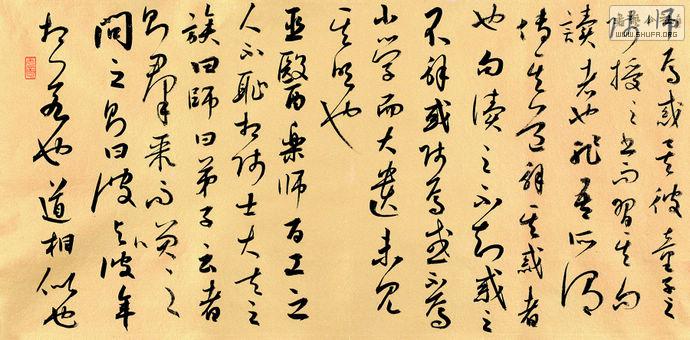 師焉惑矣彼童子之
師授之書而習其句
讀者也非吾所謂
傳其道解其惑者
也句讀之不知惑之
不解或師焉或不焉
小學而大遺未見
其明也
巫醫樂師百工之
人不恥相師士大夫之
族曰師曰弟子云者
則群聚而笑之
問之則曰彼與彼年
相若也道相似也
WWW.SHUFA.ORG